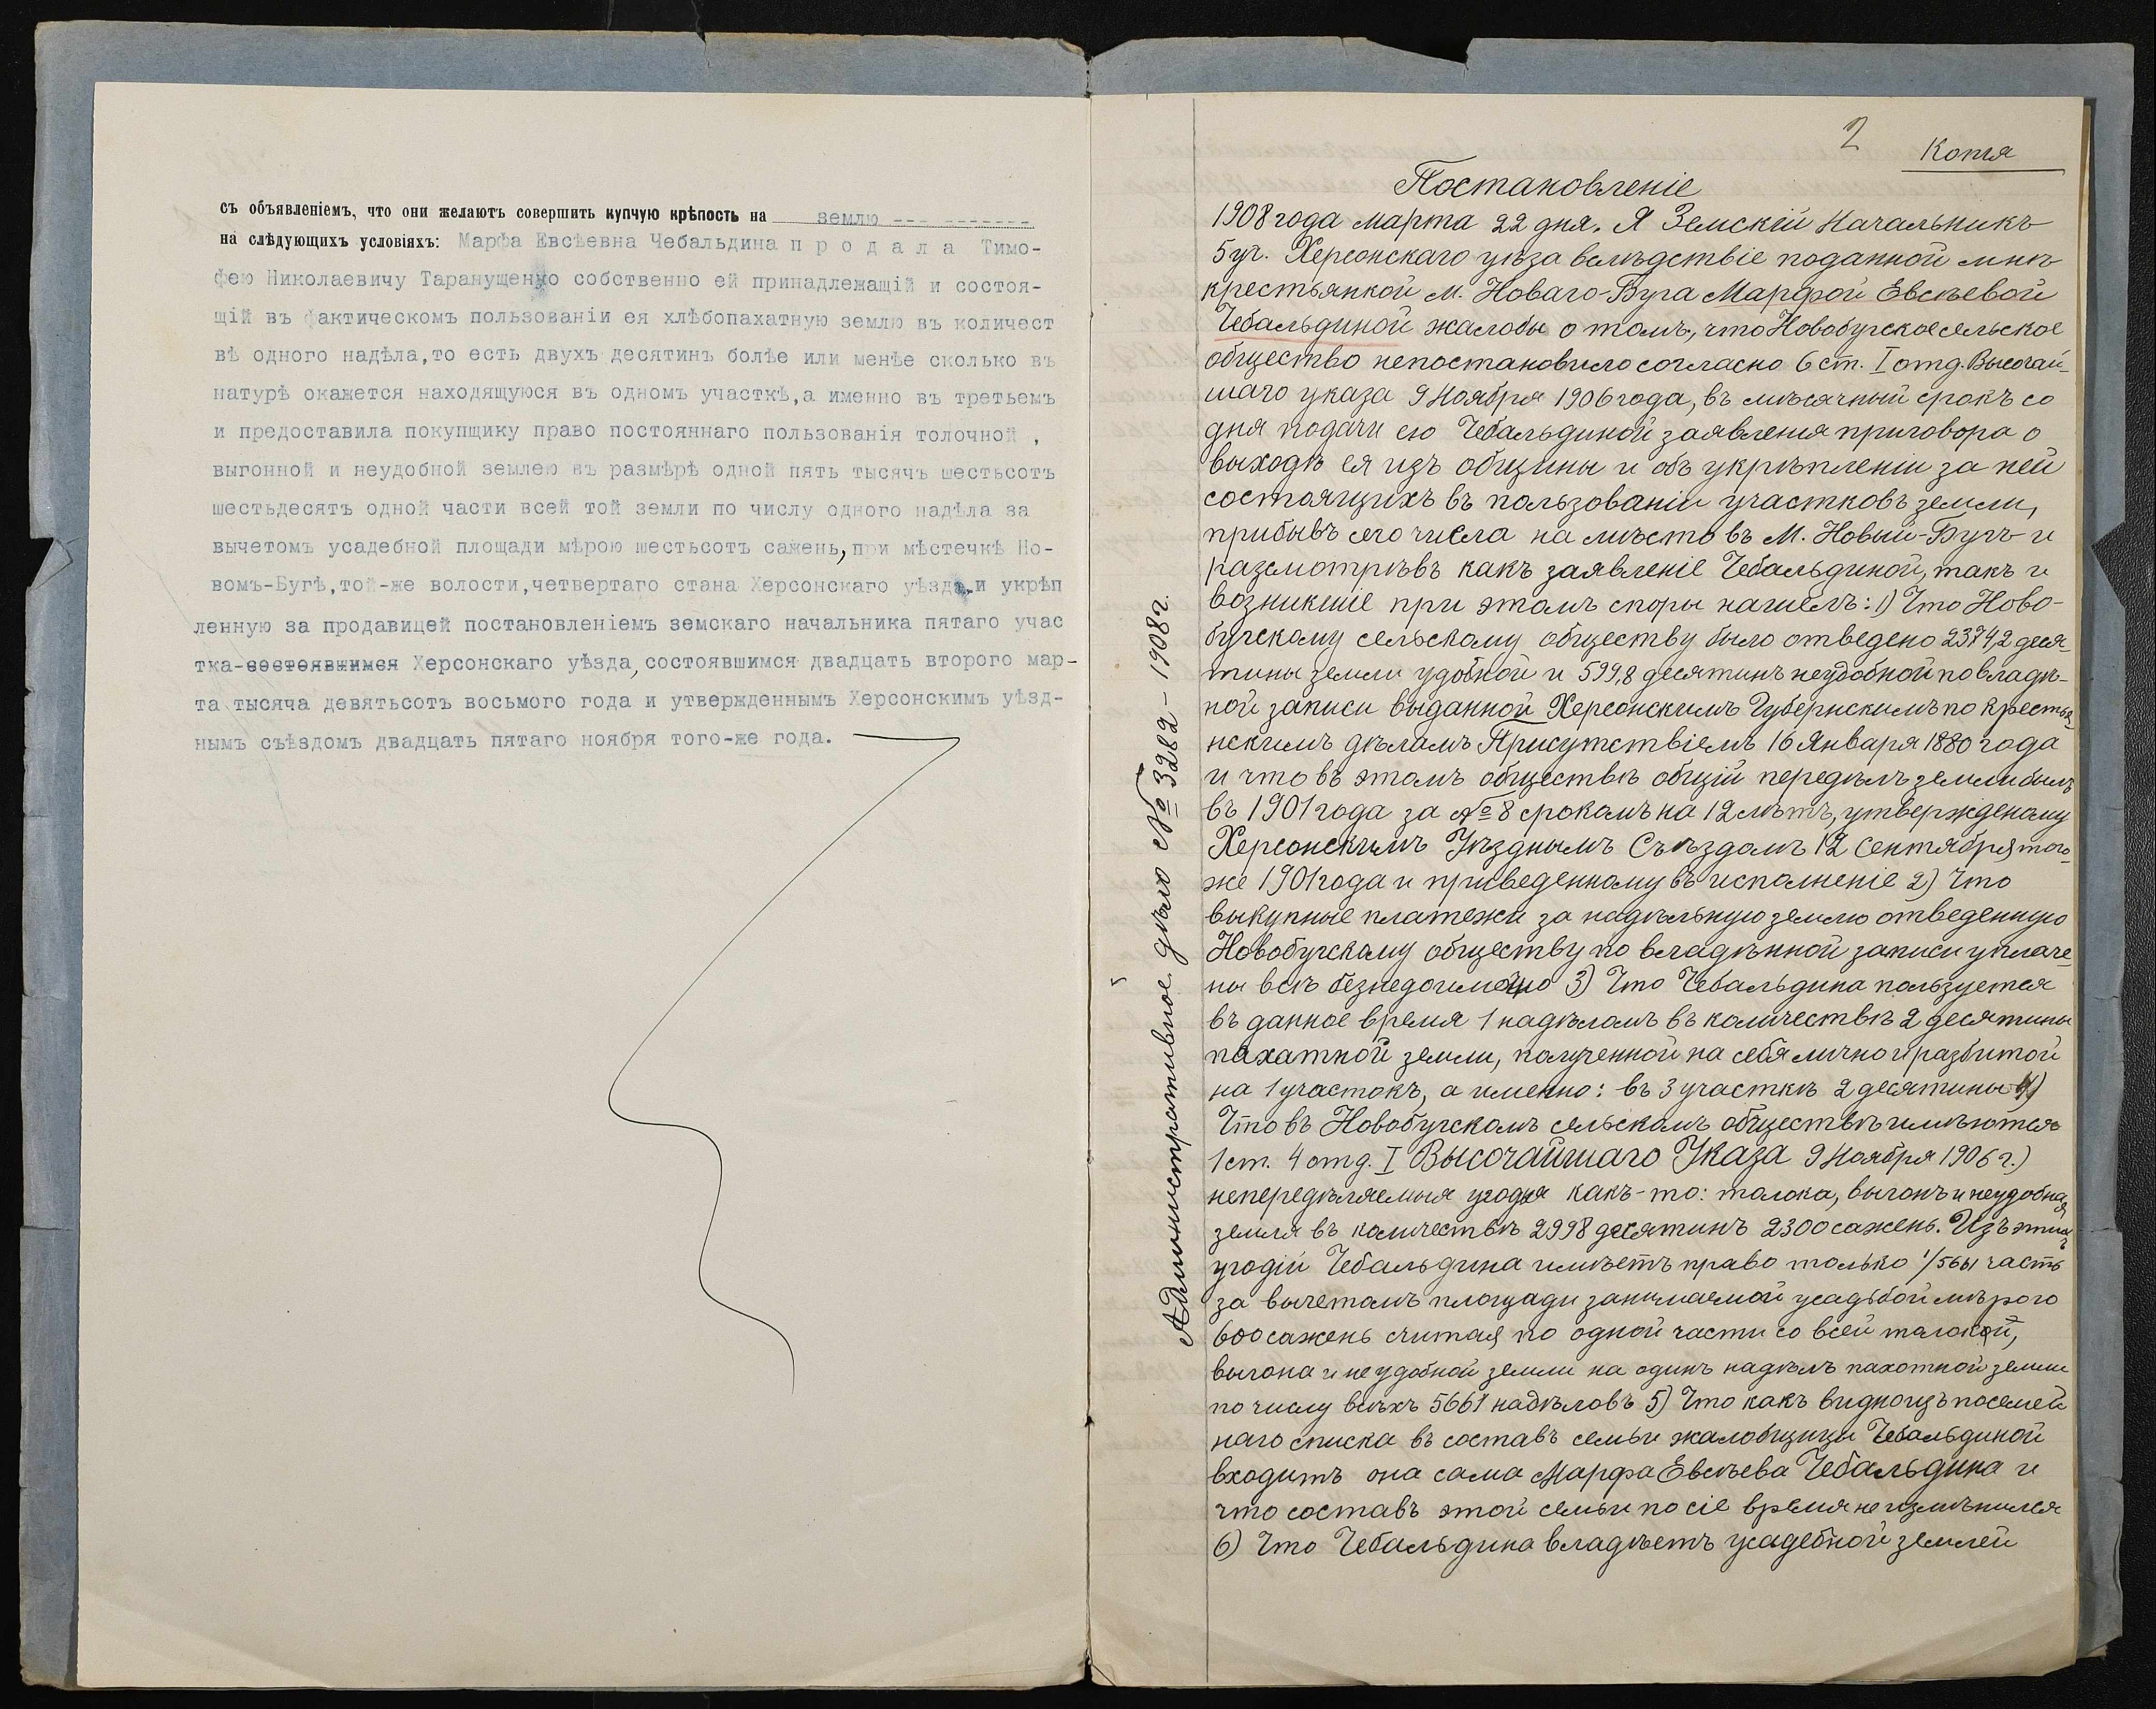 съ объявленіемъ, что они желаютъ совершить купчую крѣпость на землю --- -------
на слѣдующихъ условіяхъ: Марфа Евсѣевна Чебальдина п р о д а л а Тимо-
фею Николаевичу Таранущенко собственно ей принадлежащій и состоя-
щій въ фактическомъ пользованіи ея хлѣбопахатную землю въ количест
вѣ одного надѣла, то есть двухъ десятинъ болѣе или менѣе сколько въ
натурѣ окажется находящуюся въ одномъ участкѣ, а именно въ третьемъ
и предоставила покупщику право постояннаго пользованія толочной ,
выгонной и неудобной землею въ размѣрѣ одной пять тысячъ шестьсотъ
шестьдесятъ одной части всей той земли по числу одного надѣла за
вычетомъ усадебной площади мѣрою шестьсотъ сажень, при мѣстечкѣ Но-
вомъ-Бугѣ, той-же волости, четвертаго стана Херсонскаго уѣзда, и укрѣп
ленную за продавицей постановленіемъ земскаго начальника пятаго учас
тка-состоявшимся Херсонскаго уѣзда, состоявшимся двадцать второго мар-
та тысяча девятьсотъ восьмого года и утвержденнымъ Херсонскимъ уѣзд-
нымъ съѣздомъ двадцать пятаго ноября того-же года.
2
Копія
Постановленіе
1908 года марта 22 дня. Я Земскій Начальникъ
5 уч. Херсонскаго уѣза вслѣдствіе поданной мнѣ
крестьянкой м. Новаго-Буга Марфой Евсѣевой
Чебальдиной жалобы о томъ, что Новобугское сельское
общество непостановило согласно 6 ст. I отд. Высочай-
шаго указа 9 Ноября 1906 года, въ мѣсячный срокъ со
дня подачи ею Чебальдиной заявленія приговора о
выходѣ ея изъ общины и объ укрѣпленіи за ней
состоящихъ въ пользованіи участковъ земли,
прибывъ сего числа на мѣсто въ М. Новый-Бугъ и
разсмотрѣвъ какъ заявленіе Чебальдиной, такъ и
возникшіе при этомъ споры нашелъ: 1) Что Ново-
бугскому сельскому обществу было отведено 23742 деся-
тины земли удобной и 599,8 десятинъ неудобной по владѣ-
ной записи выданной Херсонскимъ Губернскимъ по крестья
нскимъ дѣламъ Присутствіемъ 16 Января 1880 года
и что въ этомъ обществѣ общій передѣлъ земли былъ
въ 1901 года за № 8 срокомъ на 12 лѣтъ, утвержденому
Херсонскимъ Уѣзднымъ Съѣздомъ 12 Сентября того-
же 1901 года и приведенному въ исполненіе 2) Что
выкупные платежи за надѣльную землю отведенную
Новобугскому обществу по владѣнной записи уплаче-
ны всѣ безнедоимочно 3) Что Чебальдина пользуется
въ данное время 1 надѣломъ въ количествѣ 2 десятины
пахатной земли, полученной на себя лично и разбитой
на 1 участокъ, а именно: въ 3 участкѣ 2 десятины 4)
Что въ Новобугскомъ сельскомъ обществѣ имѣются
1 ст. 4 отд. I Высочайшаго Указа 9 Ноября 1906 г.)
непередѣляемыя угодья какъ-то: толока, выгонъ и неудобная
земля въ количествѣ 2998 десятинъ 2300 сажень. Изъ этихъ
угодій Чебальдина имѣетъ право только 1/5661 часть
за вычетомъ площади занимаемой усадьбой мѣрою
600 сажень считая по одной части со всей толокой,
выгона и неудобной земли на одинъ надѣлъ пахотной земли
по числу всѣхъ 5661 надѣловъ 5) Что какъ видно изъ посемей
наго списка въ составъ семьи жалобщицы Чебальдиной
входитъ она сама Марфа Евсѣева Чебальдина и
что составъ этой семьи по сіе время не измѣнился
6) Что Чебальдина владѣетъ усадебной землей
Административное дѣло № 3282 - 1908 г.